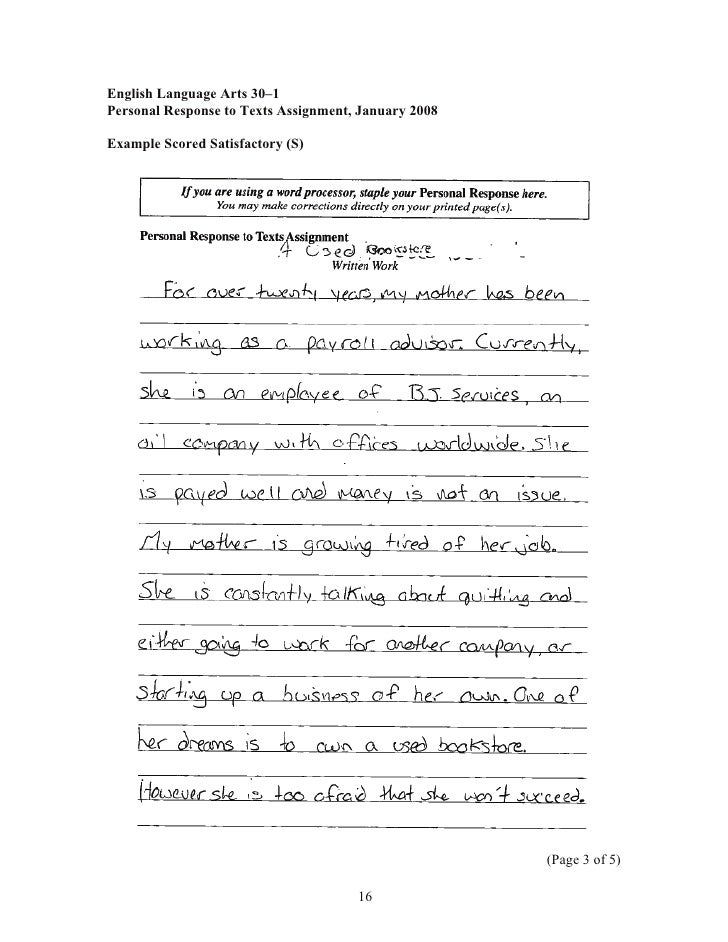 English Language Arts 30–1
Personal Response to Texts Assignment, January 2008
Example Scored Satisfactory (S)
If you are using a word processor, staple your Personal Response here.
You may make corrections directly on your printed page(s).
Personal Response to Texts Assignment
A Used Bookstore
Written Work
For over twenty years, my mother has been
working as a payroll advisor. Currently,
she is an employee of B.J. Services, an
oil company with offices worldwide. She
is payed well and money is not an issue.
My mother is growing tired of her job.
She is constantly talking about quitting and
either going to work for another company, or
starting up a buisness of her own. One of
her dreams is to own a used bookstore.
However she is too afraid that she won't succeed.
(Page 3 of 5)
16